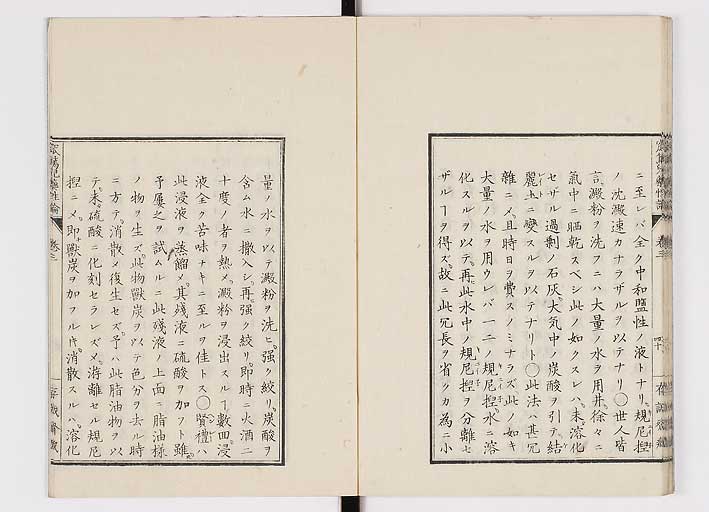 ニ至レバ全ク中和塩性ノ液トナリ。規尼揑
ノ沈澱速カナラザルヲ以テナリ〇世人皆
言澱粉ヲ洗フニハ大量ノ水ヲ用井。徐々ニ
氣中ニ晒乾スベシ此ノ如クスレハ、未溶化
セザル過剰ノ石灰。大気中ノ炭酸ヲ引テ結
麗土ニ變スルヲ以テナリト〇此法ハ甚冗
雜ニ乄且時日ヲ費スノミナラズ此ノ如キ
大量ノ水ヲ用ウレバ一二ノ規尼揑。水ニ溶
化スルヲ以テ。再此水中ノ規尼揑ヲ分離セ
ザルヿヲ得ズ。故ニ此冗長ヲ省クカ為ニ小
量ノ水ヲ以テ澱粉ヲ洗ヒ。强ク絞リ。炭酸ヲ
含ム水ニ撒入シ。再强ク絞リ。即時ニ火酒二
十度ノ者ヲ熱メ。澱粉ヲ浸出スルヿ數回。浸
液全ク苦味ナキニ至ルヲ佳トス〇賢禮ハ
此浸液ヲ蒸餾メ。其残液ニ硫酸ヲ加フト雖。
予屢之ヲ試ムルニ此残液ノ上面ニ脂油様
ノ物ヲ生ズ。此物獸炭ヲ以テ色分ヲ去ル時
ニ方テ。消散メ復生セズ。予ハ此脂油物ヲ以
テ。未硫酸ニ化刻セラレズメ。游離セル規尼
揑ニメ。即獸炭ヲ加フル𪜈。消散スルハ。溶化
卷三
四十
卷三